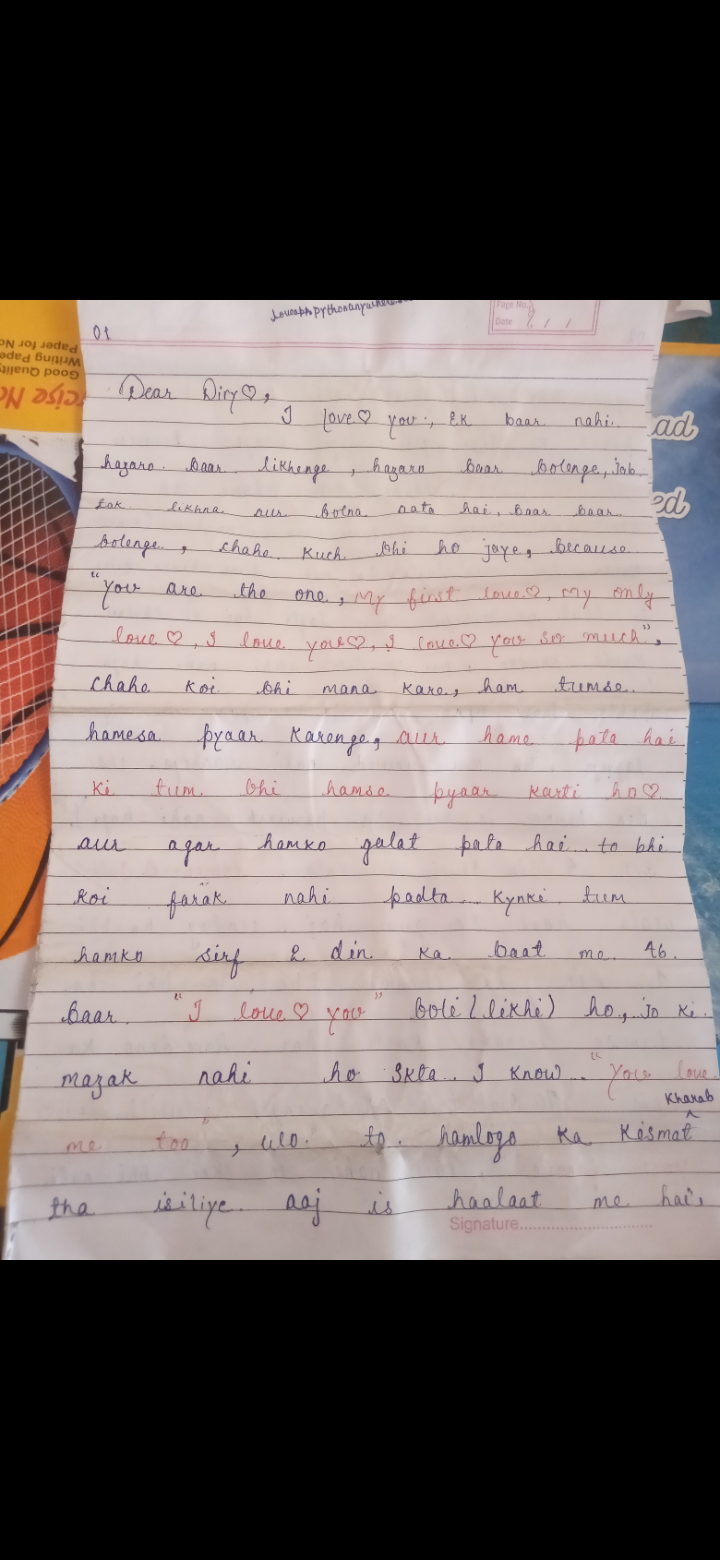 01
Page No.
Date / /
Dear Diry♡,
I love♡ you, Ek baar nahi
hazaro baar likhenge, hazaro baar bolenge, jab
tak likhna aur bolna aata hai, baar baar
bolenge, chahe kuch bhi ho jaye, because
"you are the one, My first love♡, my only
love♡, I love you♡, I love♡ you so much",
chahe koi bhi mana kare, ham tumse
hamesa pyaar karenge, aur hame pata hai
ki tum bhi hamse pyaar karti ho♡
aur agar hamko galat pata hai.. to bhi
koi farak nahi padta.. kynki tum
hamko sirf 2 din ka baat me 46
baar "I love♡ you" boli (likhi) ho, jo ki
mazak nahi ho skta.. I know.. "you love
me too", wo to hamlogo ka kismat kharab
tha isiliye aaj is haalaat me hai,
Signature..............................
Paper for No
Writing Pape
Good Quality
cise No
ad
ed